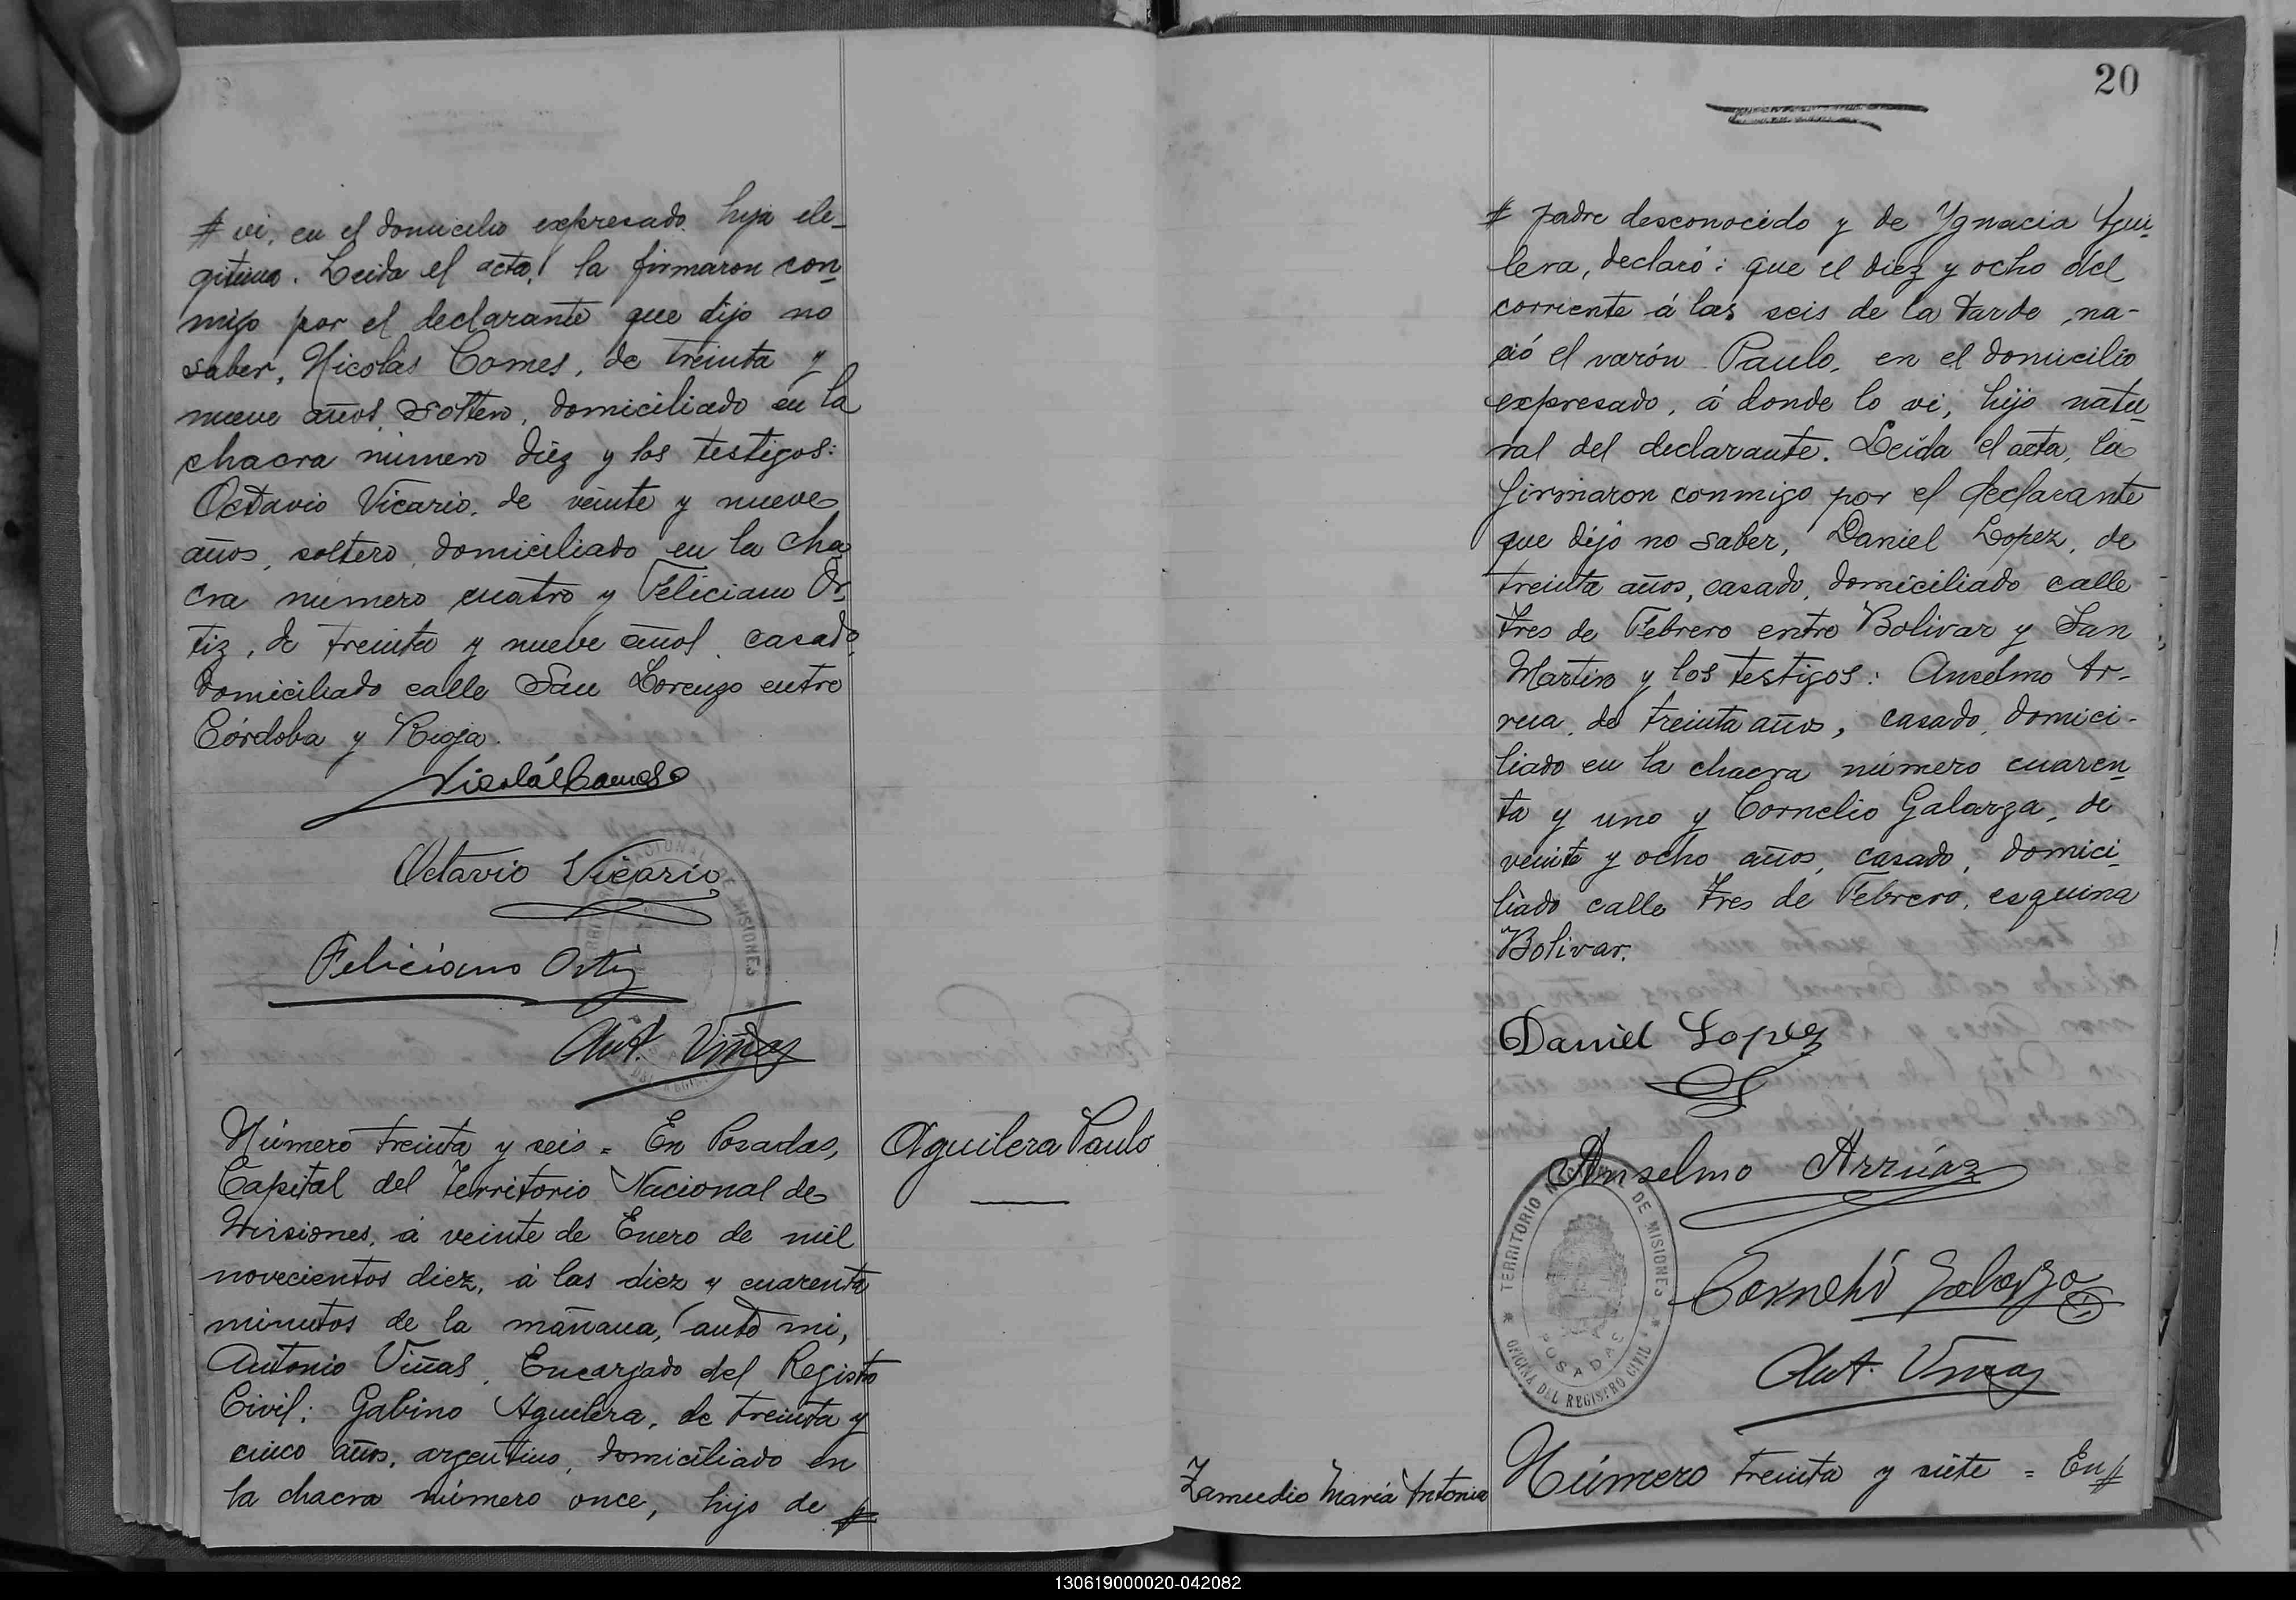 # vi, en el domicilio expresado. hija ile-
gitima. Leida el acta, la firmaron con-
migo por el declarante que dijo no
saber, Nicolás Comes, de treinta y
nueve años, soltero, domiciliado en la
chacra número diez y los testigos:
Octavio Vicario, de veinte y nueve
años, soltero, domiciliado en la cha
cra número cuatro y Feliciano Or-
tiz, de treinta y nueve años, casado,
domiciliado calle San Lorenzo entre
Córdoba y Rioja.
Octavio Vicario
Feliciano Ortiz
Ant. Viñas
Número treinta y seis = En Posadas,
Capital del Territorio Nacional de
Misiones, á veinte de Enero de mil
novecientos diez, á las diez y cuarenta
minutos de la mañana, ante mi,
Antonio Viñas, Encargado del Registro
Civil: Gabino Aguilera, de treinta y
cinco años, argentino, domiciliado en
la chacra número once, hijo de #
Aguilera Paulo
20
# padre desconocido y de Ygnacia Agui-
lera, declaró: que el diez y ocho del
corriente á las seis de la tarde, na-
ció el varón Paulo, en el domicilio
expresado, á donde lo vi, hijo natu-
ral del declarante. Leida el acta, la
firmaron conmigo por el declarante
que dijo no saber, Daniel Lopez, de
treinta años, casado, domiciliado calle
Tres de Febrero entre Bolivar y San
Martin y los testigos: Anselmo Ar-
rua, de treinta años, casado, domici-
liado en la chacra número cuaren-
ta y uno y Cornelio Galarza, de
veinte y ocho años, casado, domici-
liado calle Tres de Febrero, esquina
Bolivar.
Daniel Lopez
Anselmo Arrúaz
Cornelio Galarza
Ant. Viñas
TERRITORIO NACIONAL DE MISIONES
POSADAS
OFICINA DEL REGISTRO CIVIL
Zamudio María Antonia
Número treinta y siete = En #
130619000020-042082